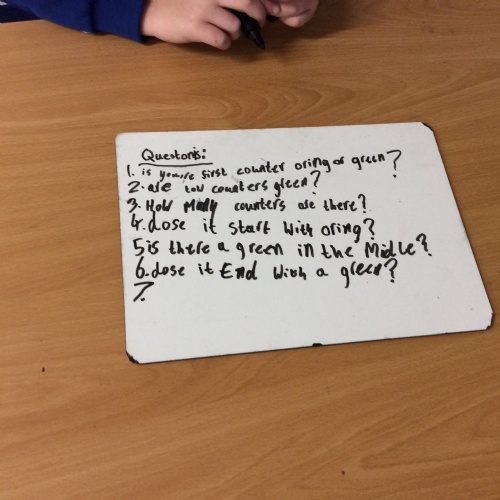 Questons:
1. is youre first counter oring or green?
2. are tow counters green?
3. How Many counters are there?
4. dose it start with oring?
5 is there a green in the Midle?
6. dose it End with a green?
7.